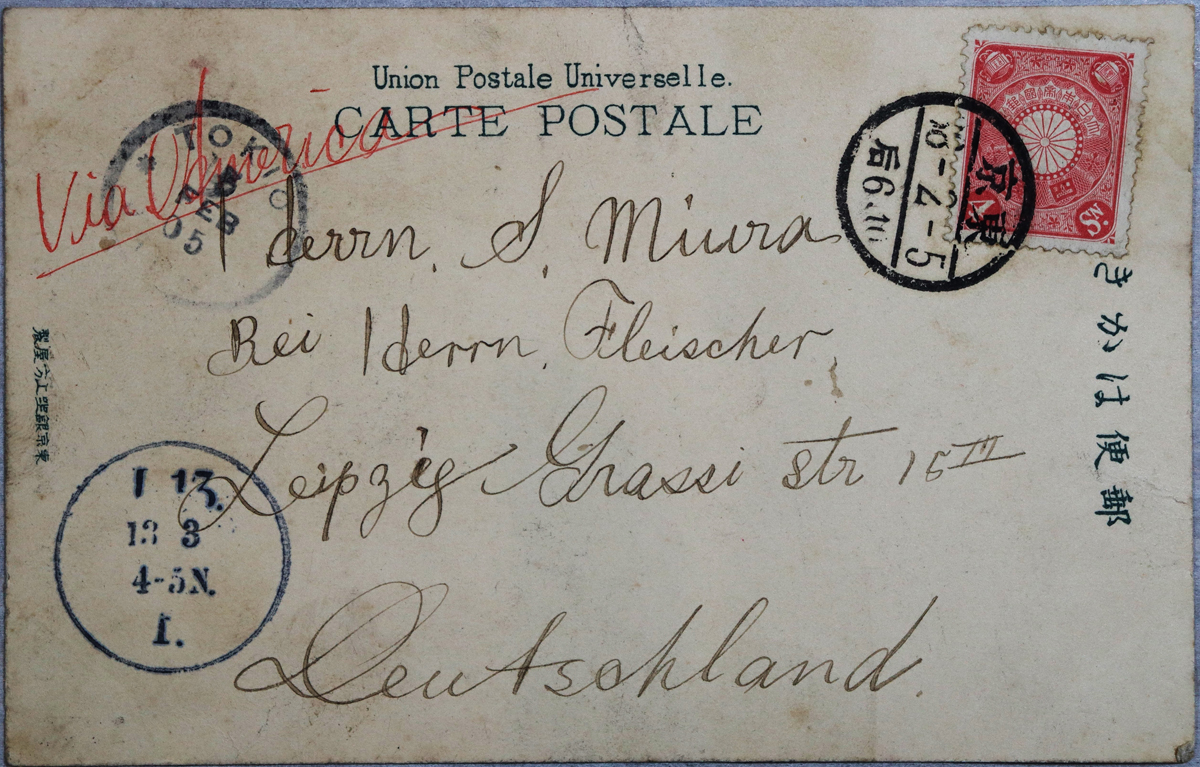 Union Postale Universelle.
CARTE POSTALE
Via America
TOKIO
FEB
05
Herrn. S. Miura
Bei Herrn. Fleischer
Leipzig Grassi str 15 III
Deutschland.
東京
-2-5
后6.10
4 Sn.
郵便はかき
東京銀座
1 13.
13 3
4-5N.
1.